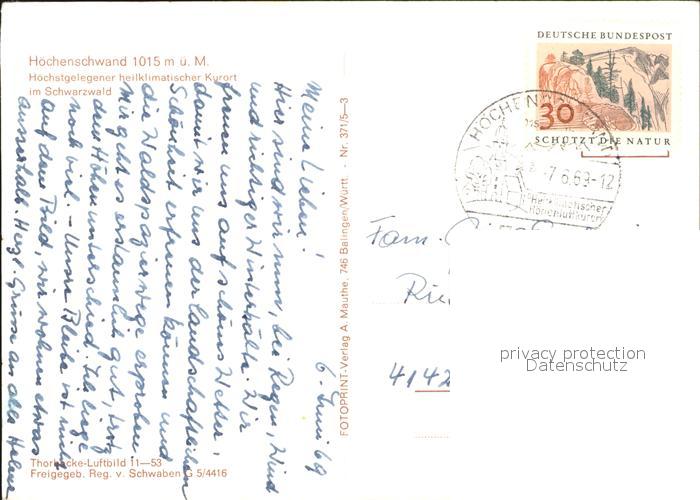 Höchenschwand 1015 m ü. M.
Höchstgelegener heilklimatischer Kurort
im Schwarzwald
6. Juni 69
Meine Lieben!
Hier sind wir nun, bei Regen, Wind
und richtiger Winterkälte. Wir
freuen uns auf schönes Wetter,
damit wir uns der landschaftlichen
Schönheit erfreuen können und
die Waldspazierwege erproben.
Mir geht es erstaunlich gut, trotz
dem Höhenunterschied. Ich liege
noch viel. - Unsre Bleibe ist nicht
auf dem Bild, wir wohnen etwas
ausserhalb. Herzl. Grüsse an alle
Thorbecke-Luftbild 11—53
Freigegeb. Reg. v. Schwaben G 5/4416
FOTOPRINT-Verlag A. Mauthe, 746 Balingen/Württ. - Nr. 371/5—3
DEUTSCHE BUNDESPOST
30
SCHÜTZT DIE NATUR
HÖCHENSCHWAND
-7.6.69-12
Heilklimatischer
Höhenluftkurort
Fam.
4142
privacy protection
Datenschutz